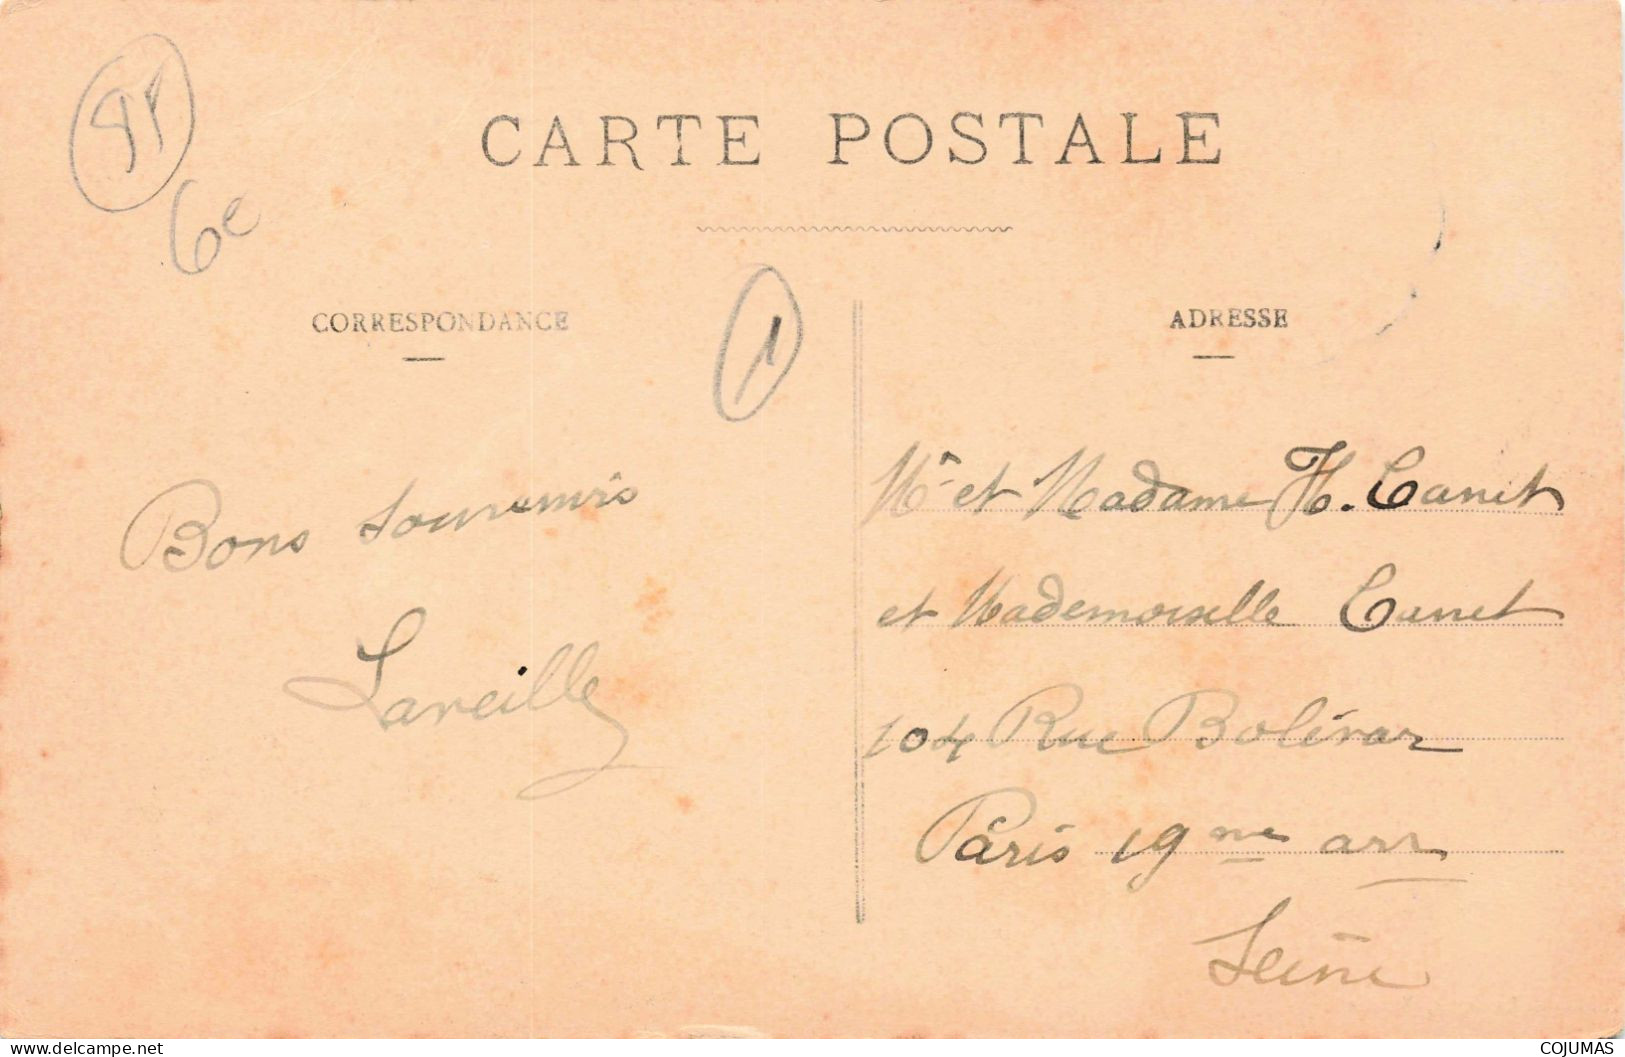 CARTE POSTALE
6e
1
CORRESPONDANCE
ADRESSE
Bons souvenirs
Lareille
Mr et Madame H. Canet
et Mademoiselle Canet
104 Rue Bolivar
Paris 19me arr
Seine
delcampe.net
COJUMAS